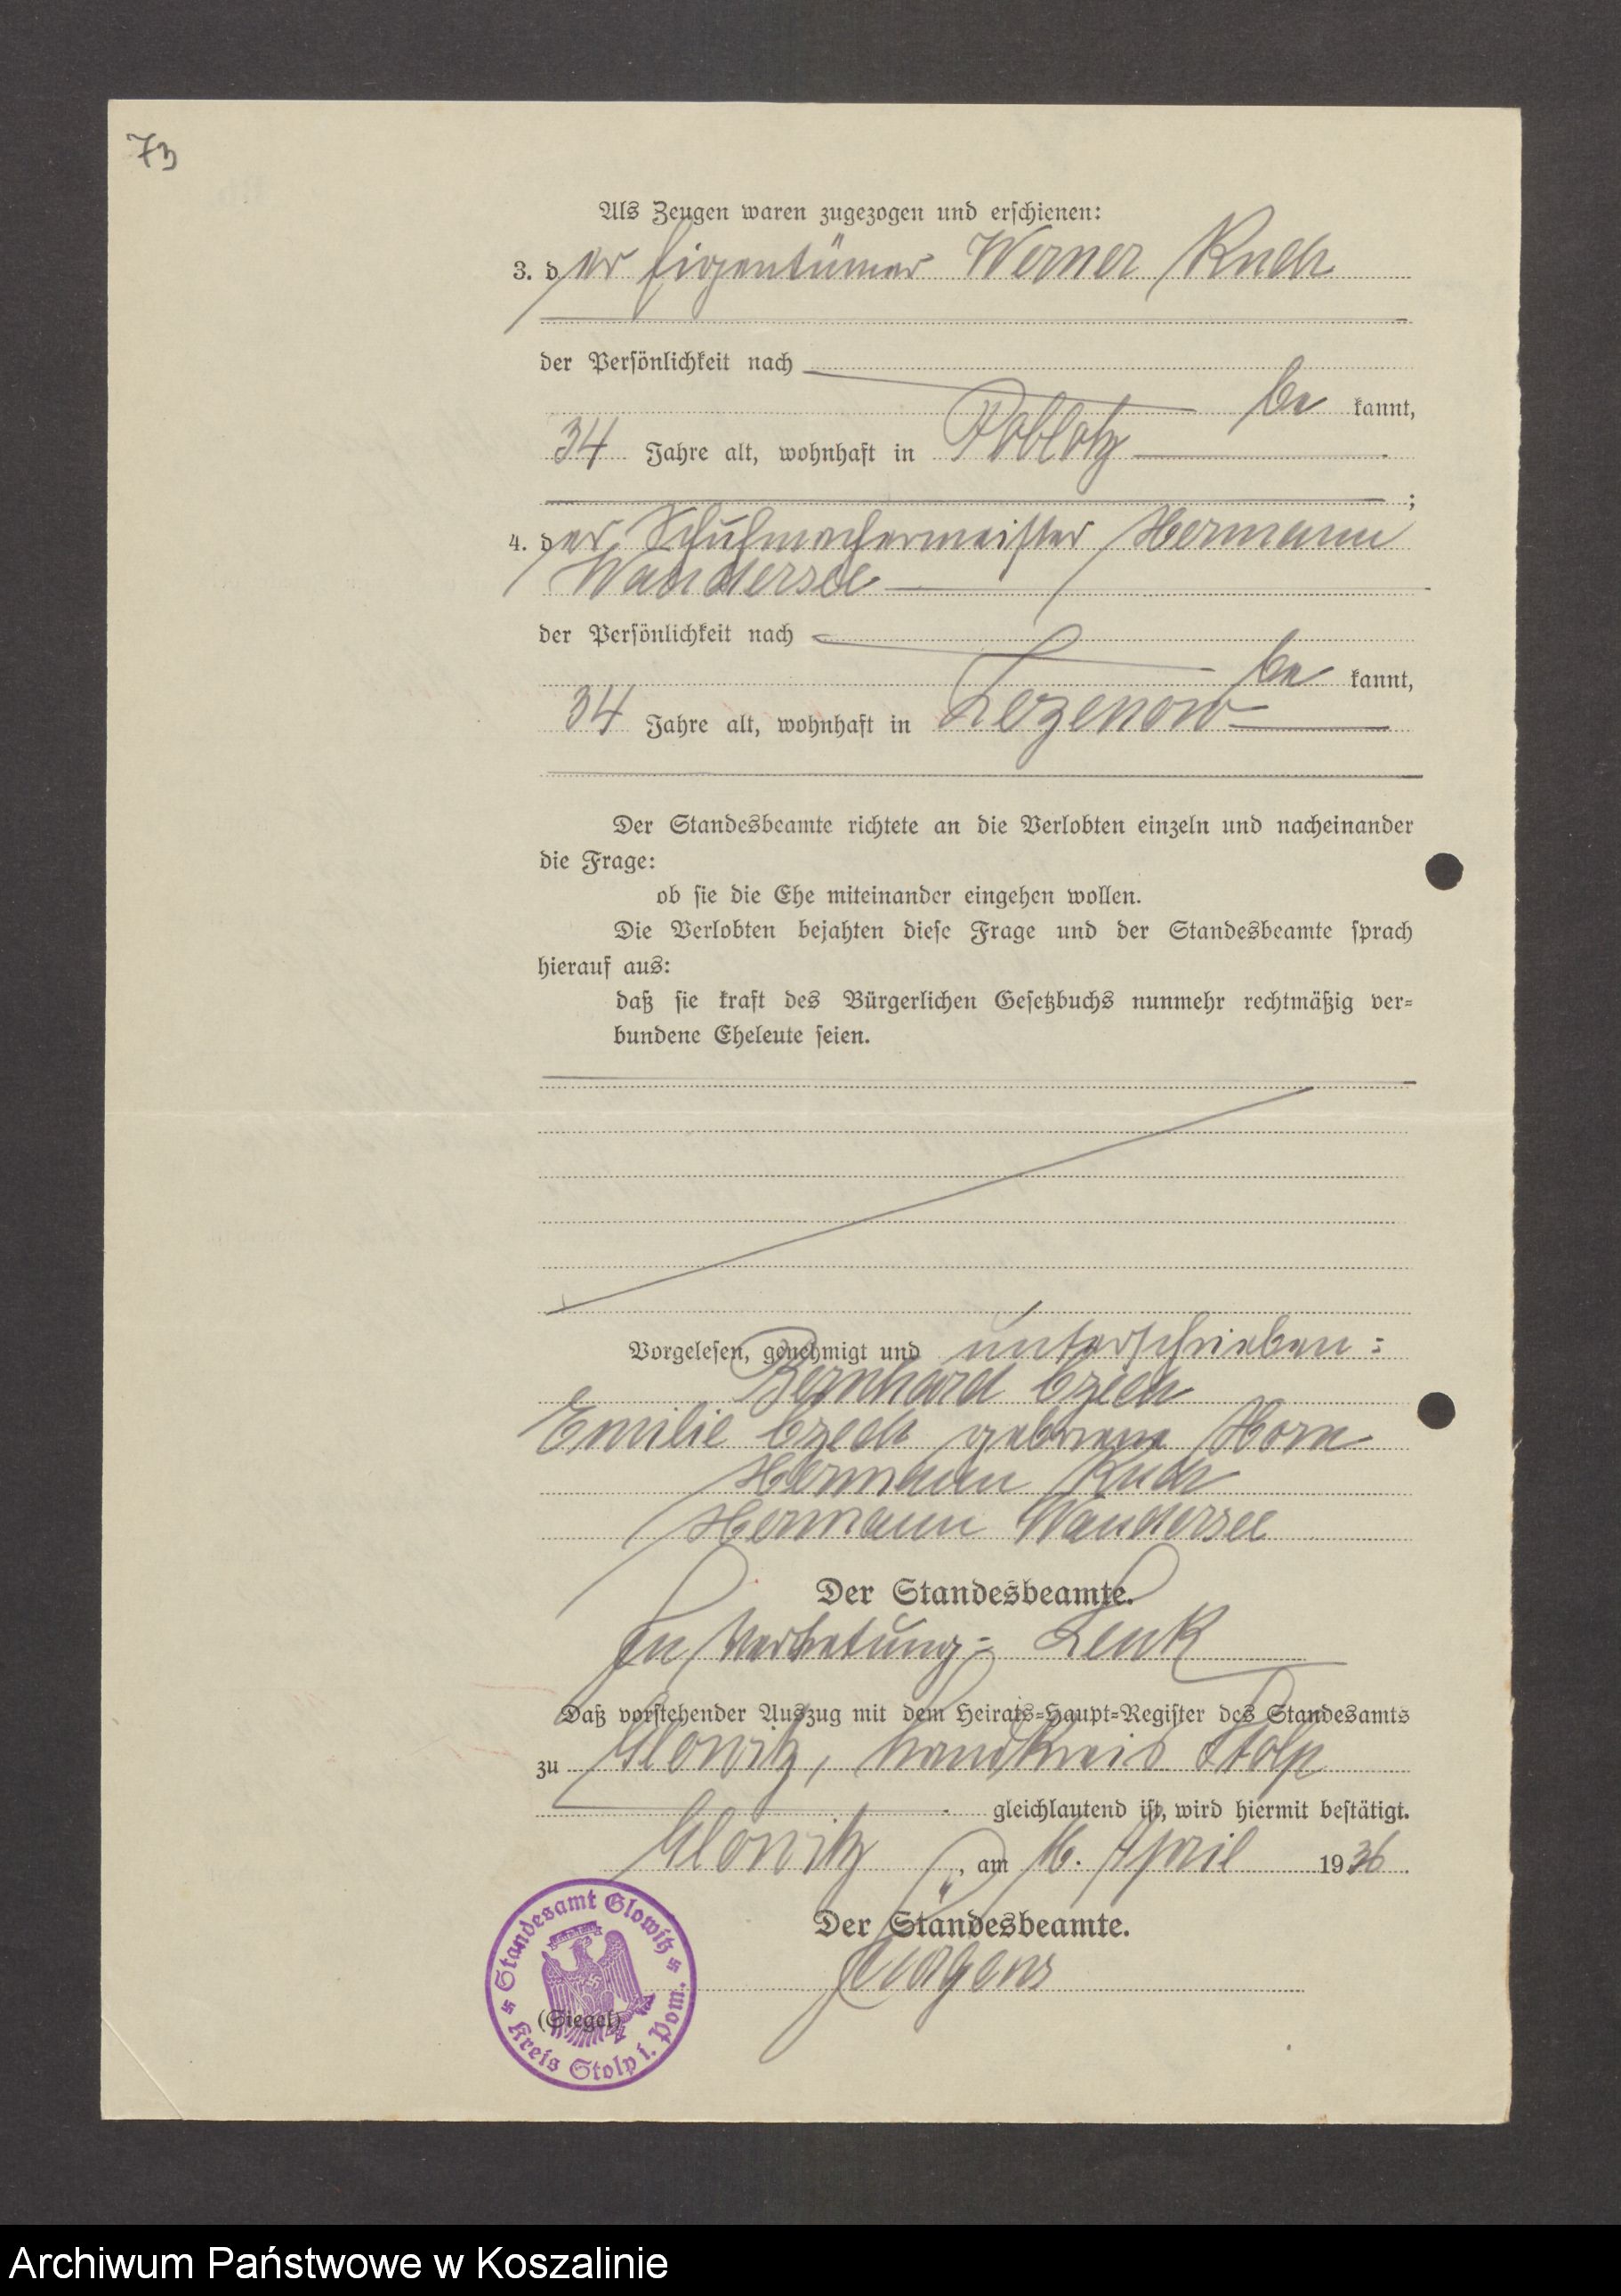 73
Als Zeugen waren zugezogen und erschienen:
3. der Eigentümer Werner Ruch
der Persönlichkeit nach
be kannt,
34 Jahre alt, wohnhaft in Poblotz
;
4. der Schuhmachermeister Hermann
Wandersee
der Persönlichkeit nach
be kannt,
34 Jahre alt, wohnhaft in Zezenow
Der Standesbeamte richtete an die Verlobten einzeln und nacheinander
die Frage:
ob sie die Ehe miteinander eingehen wollen.
Die Verlobten bejahten diese Frage und der Standesbeamte sprach
hierauf aus:
daß sie kraft des Bürgerlichen Gesetzbuchs nunmehr rechtmäßig ver-
bundene Eheleute seien.
Vorgelesen, genehmigt und unterschrieben:
Bernhard Czech
Emilie Czech geborene Horn
Hermann Ruch
Hermann Wandersee
Der Standesbeamte.
In Vertretung: Lenk
Daß vorstehender Auszug mit dem Heirats-Haupt-Register des Standesamts
zu Glowitz, Landkreis Stolp
gleichlautend ist, wird hiermit bestätigt.
Glowitz, am 16. April 1936
Der Standesbeamte.
(Siegel)
Standesamt Glowitz
Kreis Stolp i. Pom.
Archiwum Państwowe w Koszalinie